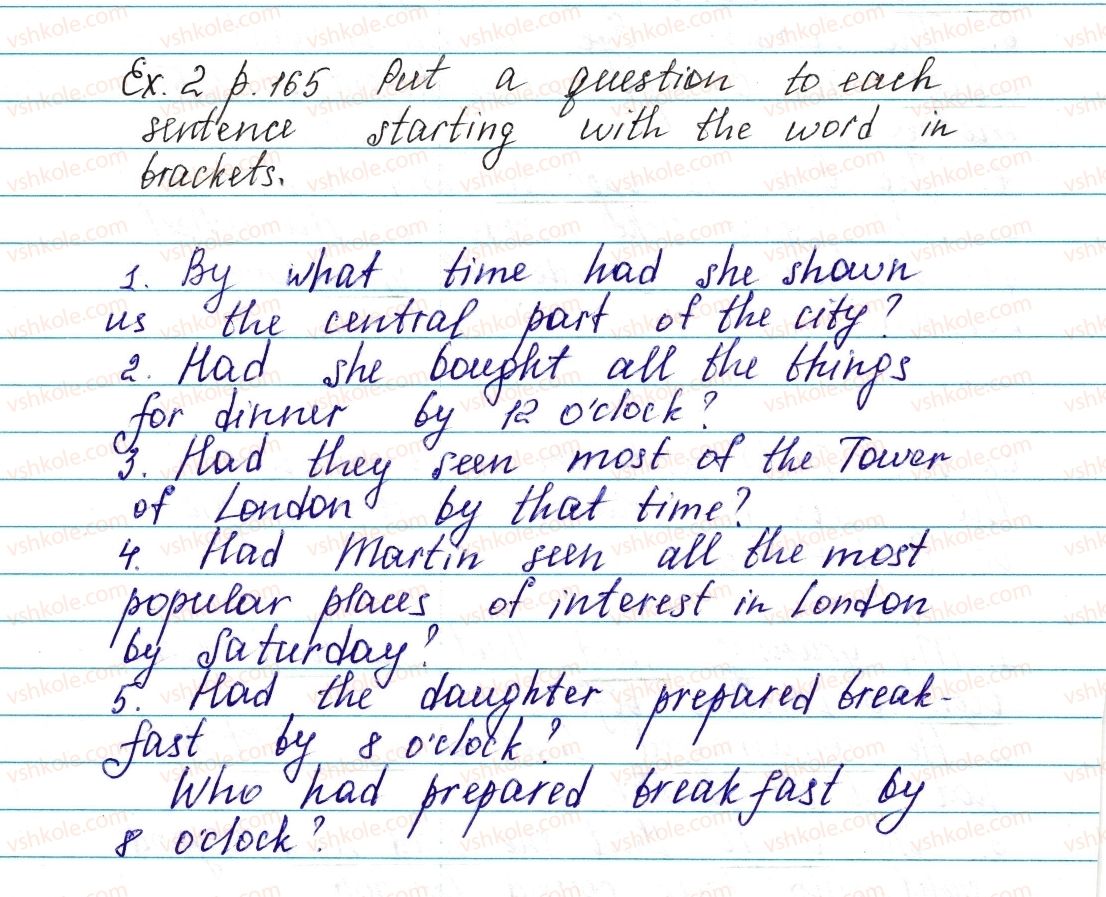 Ex. 2 p. 165 Put a question to each
sentence starting with the word in
brackets.
1. By what time had she shown
us the central part of the city?
2. Had she bought all the things
for dinner by 12 o'clock?
3. Had they seen most of the Tower
of London by that time?
4. Had Martin seen all the most
popular places of interest in London
by Saturday?
5. Had the daughter prepared break-
fast by 8 o'clock?
Who had prepared breakfast by
8 o'clock?